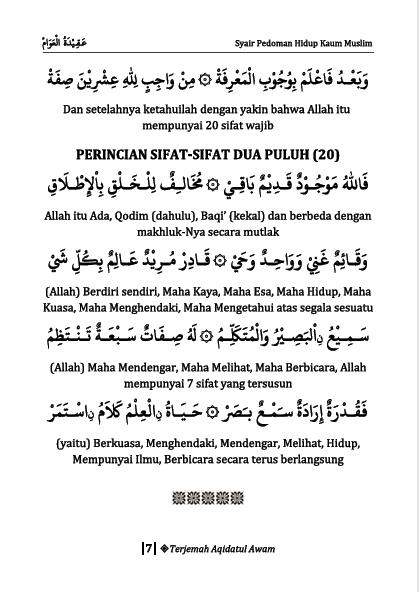 عَقِيْدَةُ الْعَوَامْ
Syair Pedoman Hidup Kaum Muslim
وَبَعْدُ فَاعْلَمْ بِوُجُوْبِ الْمَعْرِفَةْ ۞ مِنْ وَاجِبٍ لِلّٰهِ عِشْرِيْنَ صِفَةْ
Dan setelahnya ketahuilah dengan yakin bahwa Allah itu
mempunyai 20 sifat wajib
PERINCIAN SIFAT-SIFAT DUA PULUH (20)
فَاللهُ مَوْجُوْدٌ قَدِيْمٌ بَاقِيْ ۞ مُخَالِفٌ لِلْخَلْقِ بِاْلإِطْلَاقِ
Allah itu Ada, Qodim (dahulu), Baqi’ (kekal) dan berbeda dengan
makhluk-Nya secara mutlak
وَقَائِمٌ غَنِيْ وَوَاحِدٌ وَحَيْ ۞ قَادِرْ مُرِيْدٌ عَالِمٌ بِكُلِّ شَيْ
(Allah) Berdiri sendiri, Maha Kaya, Maha Esa, Maha Hidup, Maha
Kuasa, Maha Menghendaki, Maha Mengetahui atas segala sesuatu
سَمِيْعُ ۨالْبَصِيْرُ وَالْمُتَكَلِّمُ ۞ لَهُ صِفَاتٌ سَبْعَةٌ تَنْتَظِمُ
(Allah) Maha Mendengar, Maha Melihat, Maha Berbicara, Allah
mempunyai 7 sifat yang tersusun
فَقُدْرَةٌ إِرَادَةٌ سَمْعٌ بَصَرْ ۞ حَيَاةُ ۨالْعِلْمُ كَلَامُ ۨاسْتَمَرْ
(yaitu) Berkuasa, Menghendaki, Mendengar, Melihat, Hidup,
Mempunyai Ilmu, Berbicara secara terus berlangsung
|7| ◈Terjemah Aqidatul Awam